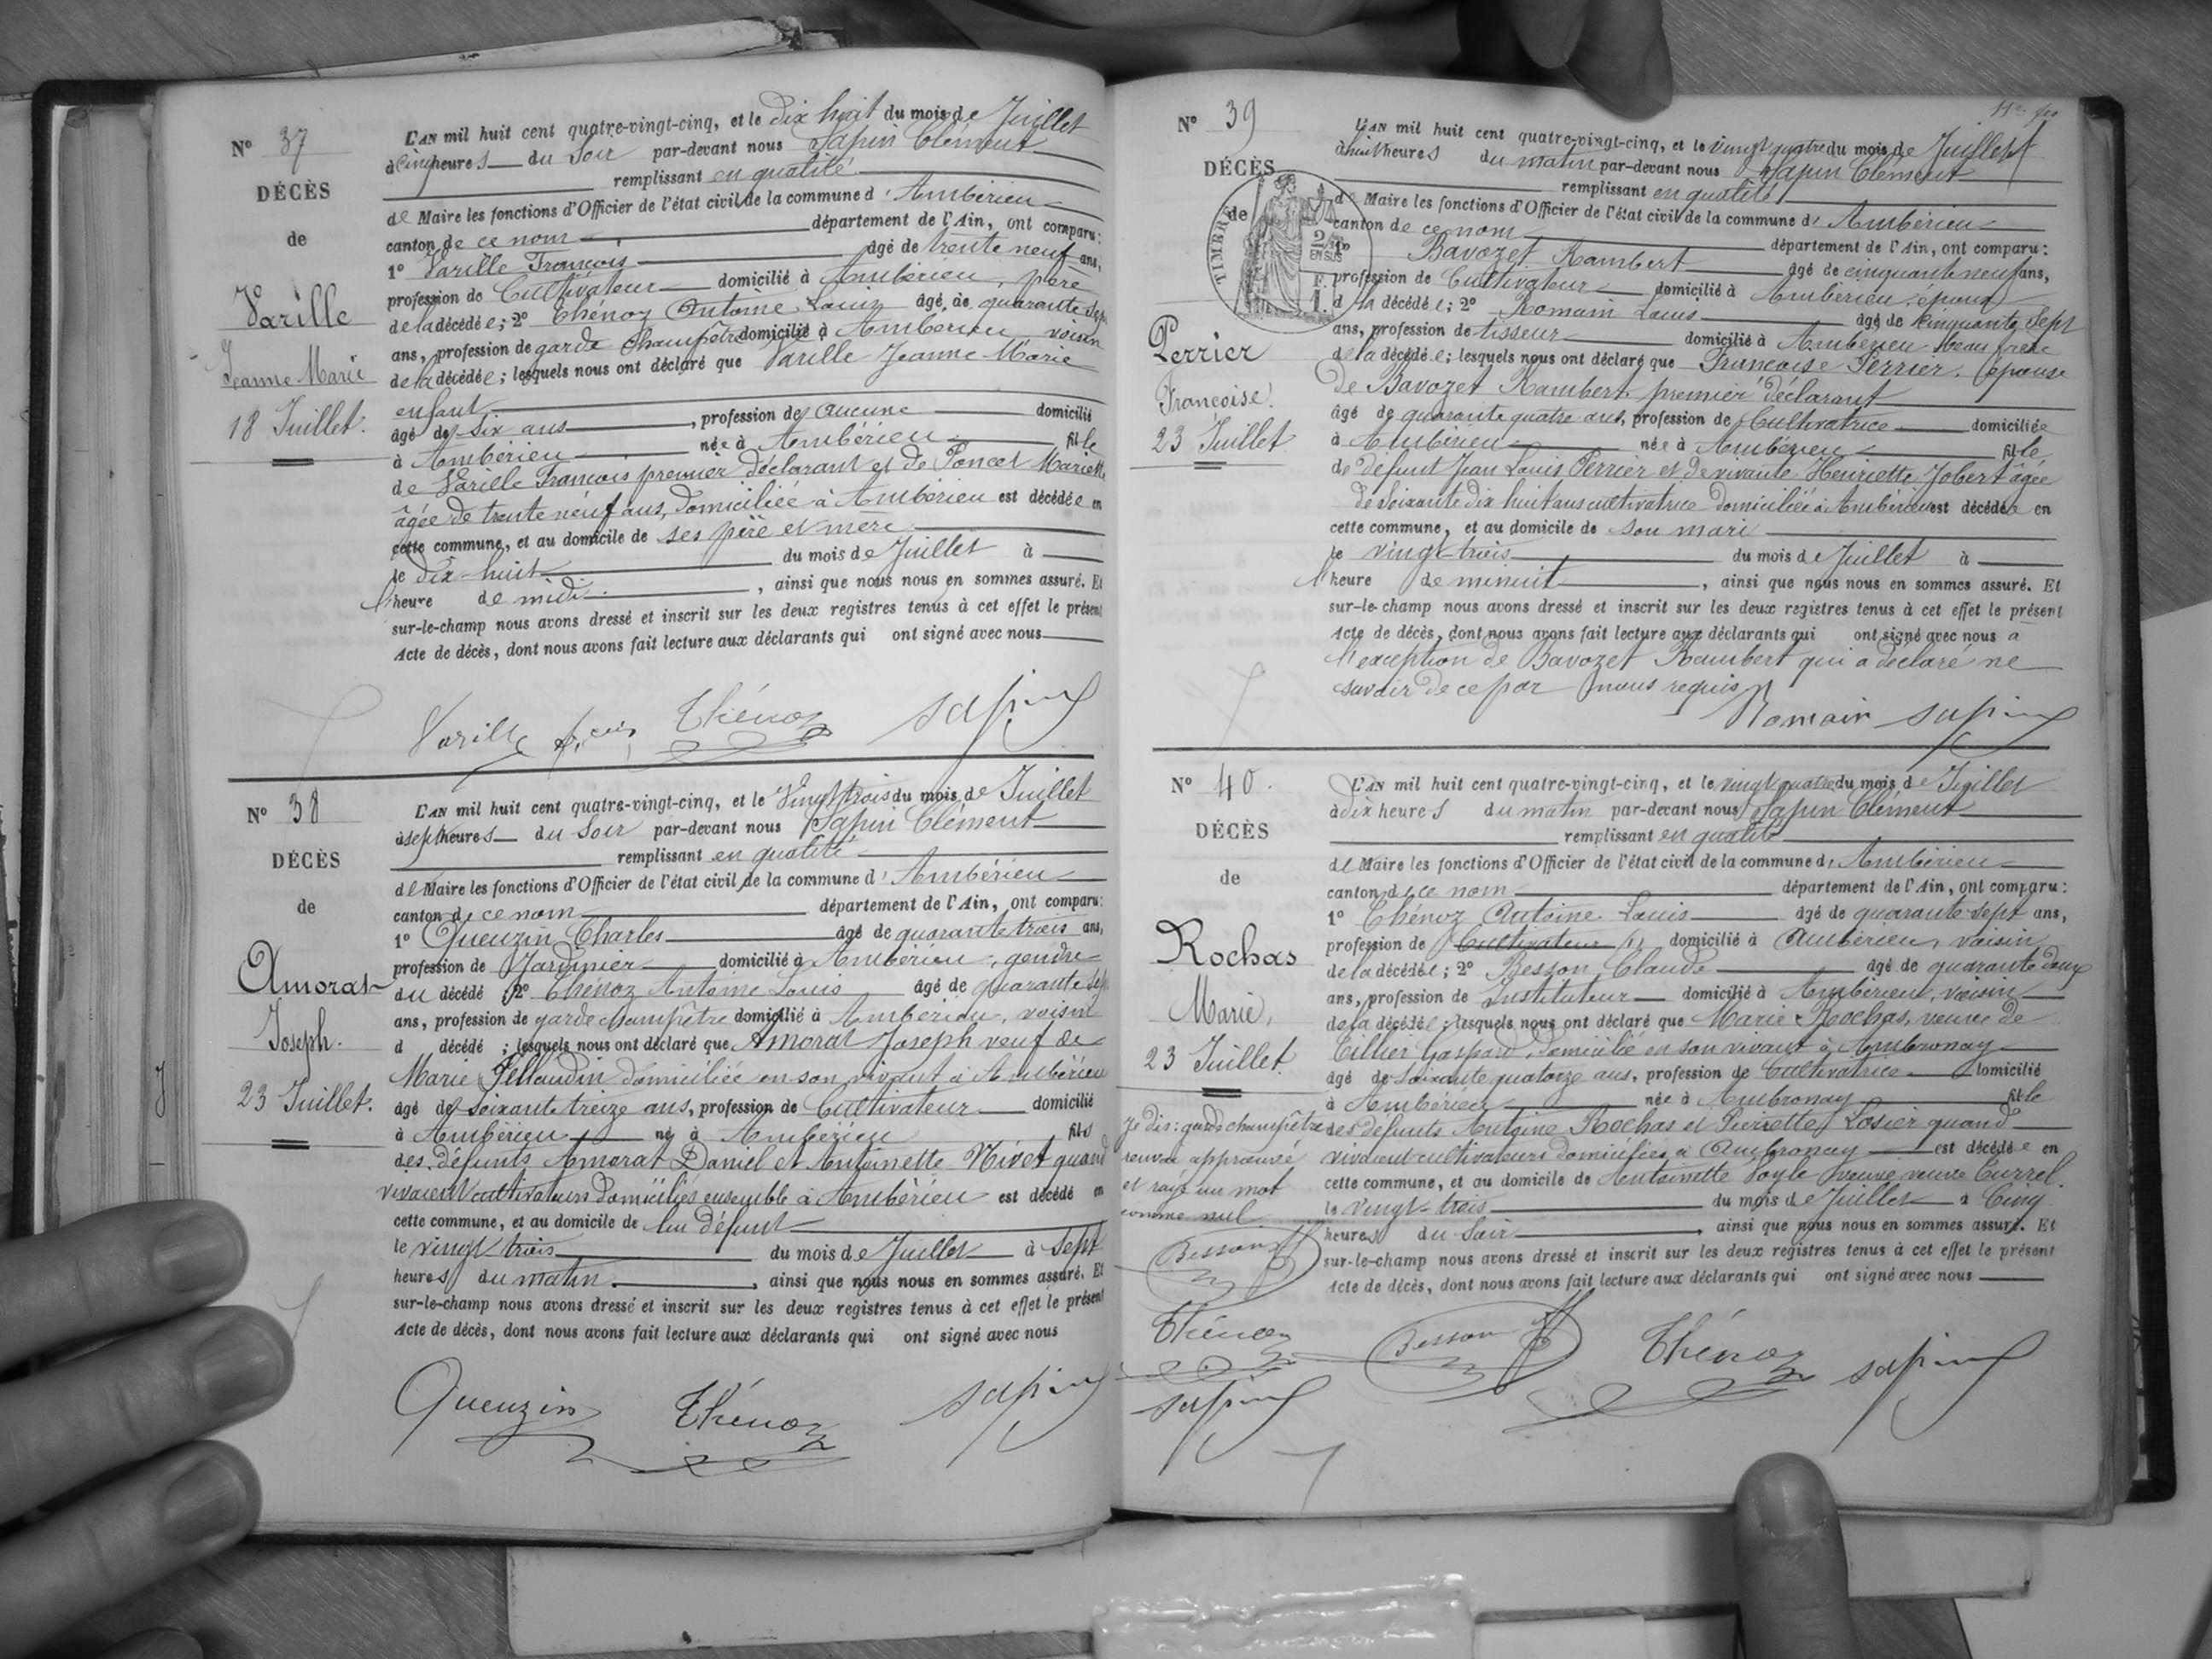 N° 37
DÉCÈS
de
Varille
Jeanne Marie
18 Juillet.
L'AN mil huit cent quatre-vingt-cinq, et le dix huit du mois de Juillet
à cinq heures du soir par-devant nous Sapin Clément
remplissant en qualité
de Maire les fonctions d'Officier de l'état civil de la commune d'Ambérieu
canton de ce nom département de l'Ain, ont comparu:
1° Varille François âgé de trente neuf ans,
profession de Cultivateur domicilié à Ambérieu, père
de la décédée; 2° Thénoz Antoine Louis âgé de quarante sept
ans, profession de garde champêtre domicilié à Ambérieu voisin
de la décédée; lesquels nous ont déclaré que Varille Jeanne Marie
enfant
âgé de six ans, profession de aucune domicilié
à Ambérieu née à Ambérieu fille
de Varille François premier déclarant et de Poncet Mariette
âgée de trente neuf ans, domiciliée à Ambérieu est décédée en
cette commune, et au domicile de ses père et mère
le dix-huit du mois de Juillet à
l'heure de midi, ainsi que nous nous en sommes assuré. Et
sur-le-champ nous avons dressé et inscrit sur les deux registres tenus à cet effet le présent
Acte de décès, dont nous avons fait lecture aux déclarants qui ont signé avec nous
Varille Thénoz Sapin
N° 38
DÉCÈS
de
Amorat
Joseph.
23 Juillet.
L'AN mil huit cent quatre-vingt-cinq, et le Vingt trois du mois de Juillet
à sept heures du soir par-devant nous Sapin Clément
remplissant en qualité
de Maire les fonctions d'Officier de l'état civil de la commune d'Ambérieu
canton de ce nom département de l'Ain, ont comparu:
1° Queuzin Charles âgé de quarante trois ans,
profession de Jardinier domicilié à Ambérieu, gendre
du décédé; 2° Thénoz Antoine Louis âgé de quarante sept
ans, profession de garde champêtre domicilié à Ambérieu, voisin
d décédé; lesquels nous ont déclaré que Amorat Joseph veuf de
Marie Pellaudin domiciliée en son vivant à Ambérieu
âgé de soixante treize ans, profession de Cultivateur domicilié
à Ambérieu né à Ambérieu fils
des défunts Amorat Daniel et Antoinette Nivet quand
vivaient cultivateurs domiciliés ensemble à Ambérieu est décédé en
cette commune, et au domicile de lui défunt
le vingt trois du mois de Juillet à sept
heures du matin, ainsi que nous nous en sommes assuré. Et
sur-le-champ nous avons dressé et inscrit sur les deux registres tenus à cet effet le présent
Acte de décès, dont nous avons fait lecture aux déclarants qui ont signé avec nous
Queuzin Thénoz Sapin
N° 39
DÉCÈS
de
TIMBRE
2/10
EN SUS
Perrier
Françoise.
23 Juillet
L'AN mil huit cent quatre-vingt-cinq, et le vingt quatre du mois de Juillet
à huit heures du matin par-devant nous Sapin Clément
remplissant en qualité
de Maire les fonctions d'Officier de l'état civil de la commune d'Ambérieu
canton de ce nom département de l'Ain, ont comparu:
1° Bavozet Rambert âgé de cinquante neuf ans,
profession de Cultivateur domicilié à Ambérieu, époux
d la décédée; 2° Romain Louis âgé de cinquante sept
ans, profession de tisseur domicilié à Ambérieu beau frère
de la décédée; lesquels nous ont déclaré que Françoise Perrier, épouse
de Bavozet Rambert premier déclarant
âgé de quarante quatre ans, profession de Cultivatrice domiciliée
à Ambérieu née à Ambérieu fille
de défunt Jean Louis Perrier et de vivante Henriette Jobert âgée
de soixante dix huit ans cultivatrice domiciliée à Ambérieu est décédée en
cette commune, et au domicile de son mari
le vingt-trois du mois de Juillet à
l'heure de minuit, ainsi que nous nous en sommes assuré. Et
sur-le-champ nous avons dressé et inscrit sur les deux registres tenus à cet effet le présent
Acte de décès, dont nous avons fait lecture aux déclarants qui ont signé avec nous à
l'exception de Bavozet Rambert qui a déclaré ne
savoir de ce par nous requis
Romain Sapin
N° 40.
DÉCÈS
de
Rochas
Marie,
23 Juillet.
Je dis: garde champêtre
renvoi approuvé
et rayé un mot
comme nul
Besson
Thénoz
Sapin
L'AN mil huit cent quatre-vingt-cinq, et le vingt quatre du mois de Juillet
à dix heures du matin par-devant nous Sapin Clément
remplissant en qualité
de Maire les fonctions d'Officier de l'état civil de la commune d'Ambérieu
canton de ce nom département de l'Ain, ont comparu:
1° Thénoz Antoine Louis âgé de quarante-sept ans,
profession de Cultivateur (1) domicilié à Ambérieu, voisin
de la décédée; 2° Besson Claude âgé de quarante deux
ans, profession de Instituteur domicilié à Ambérieu, voisin
de la décédée; lesquels nous ont déclaré que Marie Rochas, veuve de
Tillier Gaspard, domicilié en son vivant à Ambronay
âgé de soixante quatorze ans, profession de Cultivatrice domicilié
à Ambérieu née à Ambronay fille
des défunts Antoine Rochas et Pierrette Losier quand
vivaient cultivateurs domiciliés à Ambronay est décédée en
cette commune, et au domicile de Antoinette Voyle veuve Currel.
le vingt-trois du mois de Juillet à Cinq
heures du soir, ainsi que nous nous en sommes assuré. Et
sur-le-champ nous avons dressé et inscrit sur les deux registres tenus à cet effet le présent
Acte de décès, dont nous avons fait lecture aux déclarants qui ont signé avec nous
Besson Thénoz Sapin